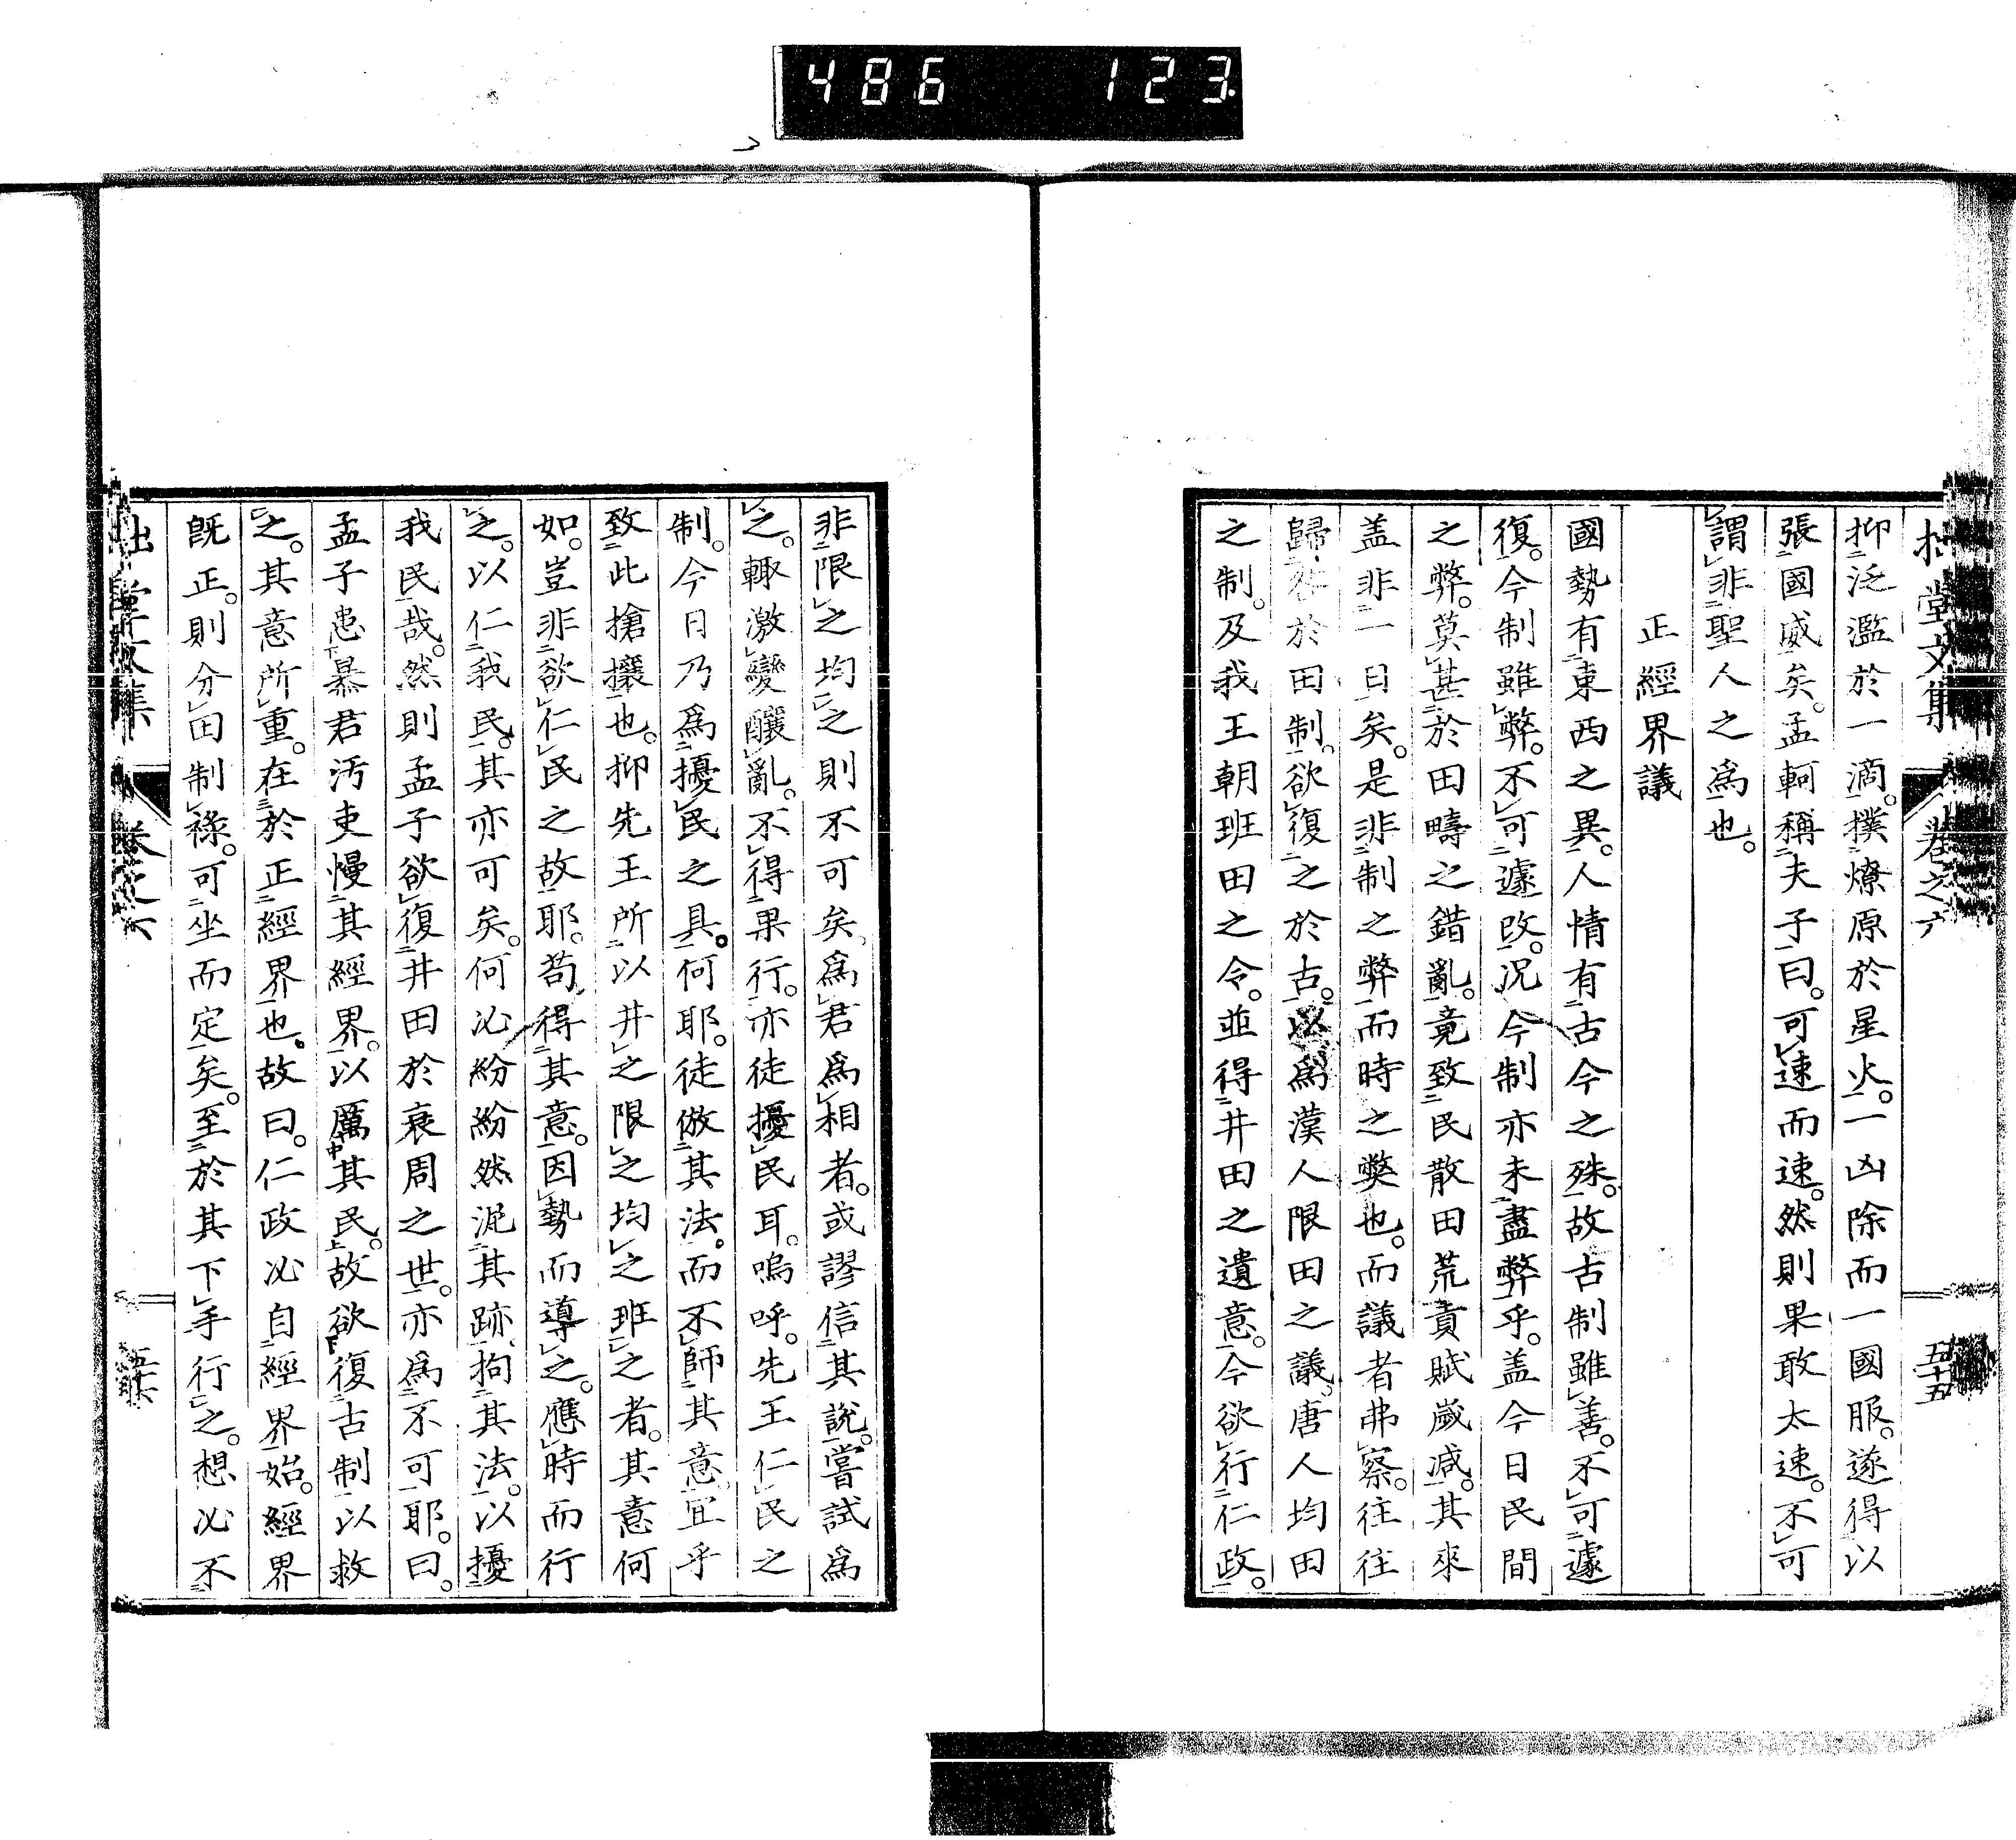 486 123
拙堂文集 卷之六 五十五
抑泛濫於一滴。撲燎原於星火。一凶除而一國服。遂得以
張國威矣。孟軻稱夫子曰。可速而速。然則果敢太速。不可
謂非聖人之爲也。
正經界議
國勢有東西之異。人情有古今之殊。故古制雖善。不可遽
復。今制雖弊。不可遽改。況今制亦未盡弊乎。盖今日民間
之弊。莫甚於田疇之錯亂。竟致民散田荒責賦歲減。其來
盖非一日矣。是非制之弊而時之獘也。而議者弗察。往往
歸咎於田制。欲復之於古。以爲漢人限田之議。唐人均田
之制。及我王朝班田之令。並得井田之遺意。今欲行仁政。
非限之均之則不可矣、爲君爲相者。或謬信其說。嘗試爲
之。輙激變釀亂。不得果行。亦徒擾民耳。嗚呼。先王仁民之
制。今日乃爲擾民之具。何耶。徒倣其法。而不師其意。宜乎
致此搶攘也。抑先王所以井之限之均之班之者。其意何
如。豈非欲仁民之故耶。苟得其意。因勢而導之。應時而行
之。以仁我民。其亦可矣。何必紛紛然泥其跡、拘其法。以擾
我民哉。然則孟子欲復井田於衰周之世。亦爲不可耶。曰。
孟子患暴君汚吏慢其經界。以厲其民。故欲復古制以救
之。其意所重。在於正經界也。故曰。仁政必自經界始。經界
旣正。則分田制祿。可坐而定矣。至於其下手行之。想必不
拙堂文集 卷之六 五十六